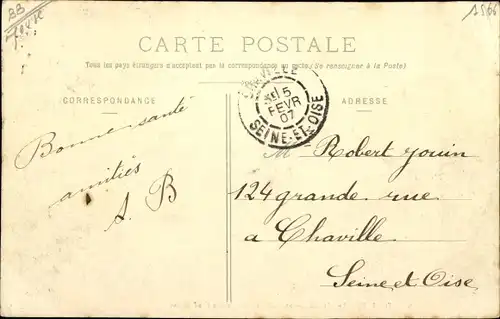 CARTE POSTALE
Tous les pays étrangers n'acceptent pas la correspondance au recto (Se renseigner à la Poste)
CORRESPONDANCE
ADRESSE
5
FEVR
07
SEINE-ET-OISE
Bonne santé
amitiés
A. B
M Robert Jouin
124 grande rue
a Chaville
Seine et Oise